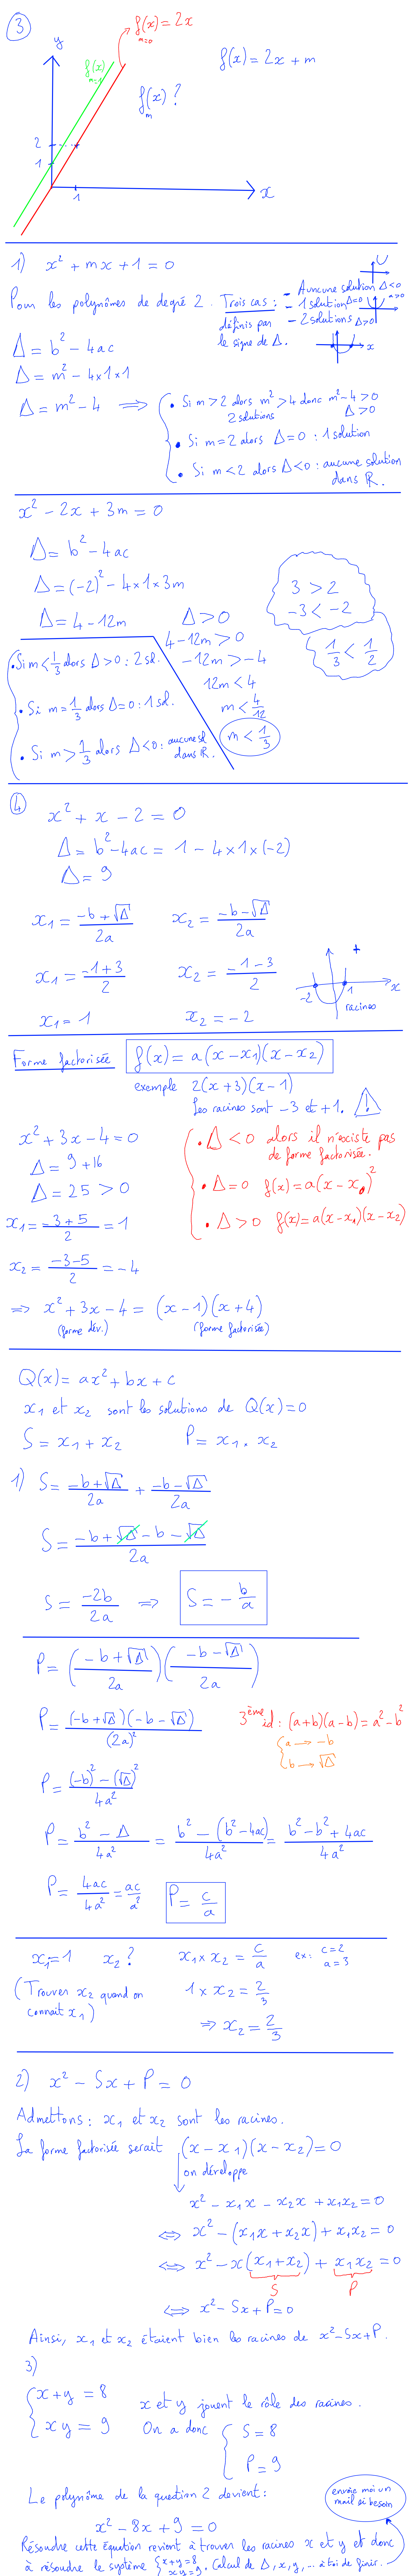 3
f(x) = 2x
m=0
y
f(x)
m=1
f(x) = 2x + m
f(x) ?
m
2
1
1
x
1) x² + mx + 1 = 0
Pour les polynômes de degré 2. Trois cas :
définis par
le signe de Δ.
- Auncune solution Δ<0
- 1 solution Δ=0
a>0
- 2 solutions Δ>0
x
Δ = b² - 4ac
Δ = m² - 4×1×1
Δ = m² - 4 ⟹
• Si m > 2 alors m² > 4 donc m² - 4 > 0
2 solutions Δ > 0
• Si m = 2 alors Δ = 0 : 1 solution
• Si m < 2 alors Δ < 0 : aucune solution
dans ℝ.
x² - 2x + 3m = 0
Δ = b² - 4ac
Δ = (-2)² - 4×1×3m
Δ = 4 - 12m
3 > 2
-3 < -2
1/3 < 1/2
Δ > 0
4 - 12m > 0
-12m > -4
12m < 4
m < 4/12
m < 1/3
• Si m < 1/3 alors Δ > 0 : 2 sol.
• Si m = 1/3 alors Δ = 0 : 1 sol.
• Si m > 1/3 alors Δ < 0 : aucune sol
dans ℝ.
4
x² + x - 2 = 0
Δ = b² - 4ac = 1 - 4×1×(-2)
Δ = 9
x₁ = (-b + √Δ)/2a x₂ = (-b - √Δ)/2a
x₁ = (-1 + 3)/2 x₂ = (-1 - 3)/2
x₁ = 1 x₂ = -2
+
-2
1
x
racines
Forme factorisée f(x) = a(x - x₁)(x - x₂)
exemple 2(x + 3)(x - 1)
Les racines sont -3 et +1. !
x² + 3x - 4 = 0
Δ = 9 + 16
Δ = 25 > 0
x₁ = (-3 + 5)/2 = 1
x₂ = (-3 - 5)/2 = -4
• Δ < 0 alors il n'existe pas
de forme factorisée.
• Δ = 0 f(x) = a(x - x₀)²
• Δ > 0 f(x) = a(x - x₁)(x - x₂)
⟹ x² + 3x - 4 = (x - 1)(x + 4)
(forme dév.) (forme factorisée)
Q(x) = ax² + bx + c
x₁ et x₂ sont les solutions de Q(x) = 0
S = x₁ + x₂ P = x₁ × x₂
1) S = (-b + √Δ)/2a + (-b - √Δ)/2a
S = (-b + √Δ - b - √Δ)/2a
S = -2b/2a ⟹ S = - b/a
P = ((-b + √Δ)/2a)((-b - √Δ)/2a)
P = (-b + √Δ)(-b - √Δ)/(2a)²
3ème id : (a+b)(a-b) = a² - b²
a → -b
b → √Δ
P = ((-b)² - (√Δ)²)/4a²
P = (b² - Δ)/4a² = (b² - (b² - 4ac))/4a² = (b² - b² + 4ac)/4a²
P = 4ac/4a² = ac/a² P = c/a
x₁ = 1 x₂ ? x₁ × x₂ = c/a ex : c = 2
a = 3
(Trouver x₂ quand on
connait x₁)
1 × x₂ = 2/3
⟹ x₂ = 2/3
2) x² - Sx + P = 0
Admettons : x₁ et x₂ sont les racines.
La forme factorisée serait (x - x₁)(x - x₂) = 0
on développe
x² - x₁x - x₂x + x₁x₂ = 0
⟺ x² - (x₁x + x₂x) + x₁x₂ = 0
⟺ x² - x(x₁ + x₂) + x₁x₂ = 0
S P
⟺ x² - Sx + P = 0
Ainsi, x₁ et x₂ étaient bien les racines de x² - Sx + P.
3)
x + y = 8
xy = 9
x et y jouent le rôle des racines.
On a donc
S = 8
P = 9
Le polynôme de la question 2 devient :
envoie moi un
mail si besoin
x² - 8x + 9 = 0
Résoudre cette équation revient à trouver les racines x et y et donc
à résoudre le système x + y = 8
xy = 9. Calcul de Δ, x, y, ... à toi de finir.